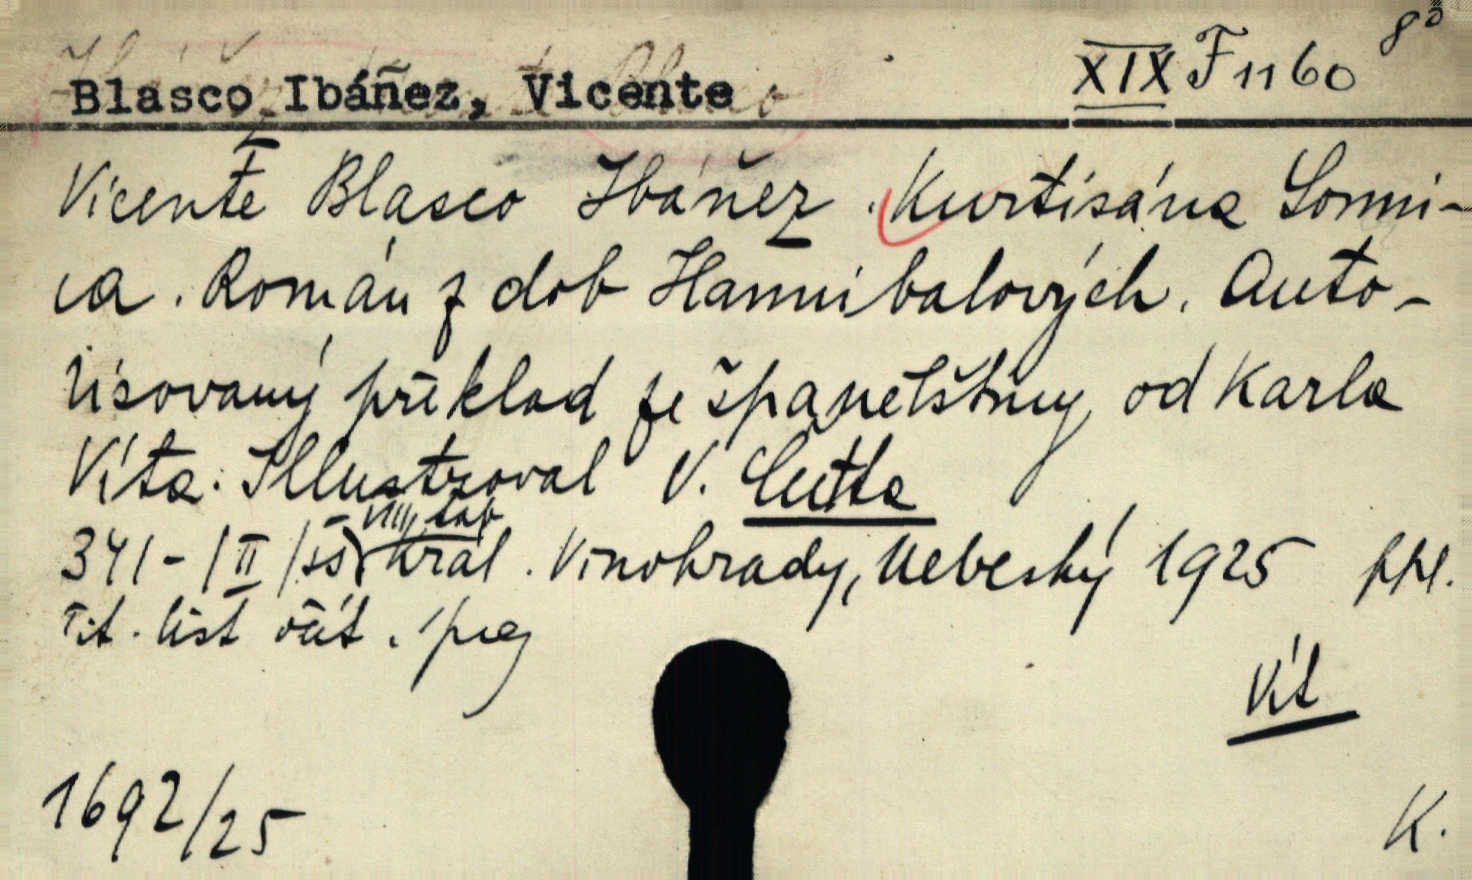 XIX F 1160 8°
Blasco Ibáñez, Vicente
Vicente Blasco Ibáñez. Kurtisána Sonni-
ca. Román z dob Hannibalových. Auto-
risovaný překlad ze španělštiny od Karla
Víta. Illustroval V. Čutta
VIII tab
341 - /II/ šš král. Vinohrady, Nebeský 1925 ppl.
Tit. list
Vít
1692/25
K.